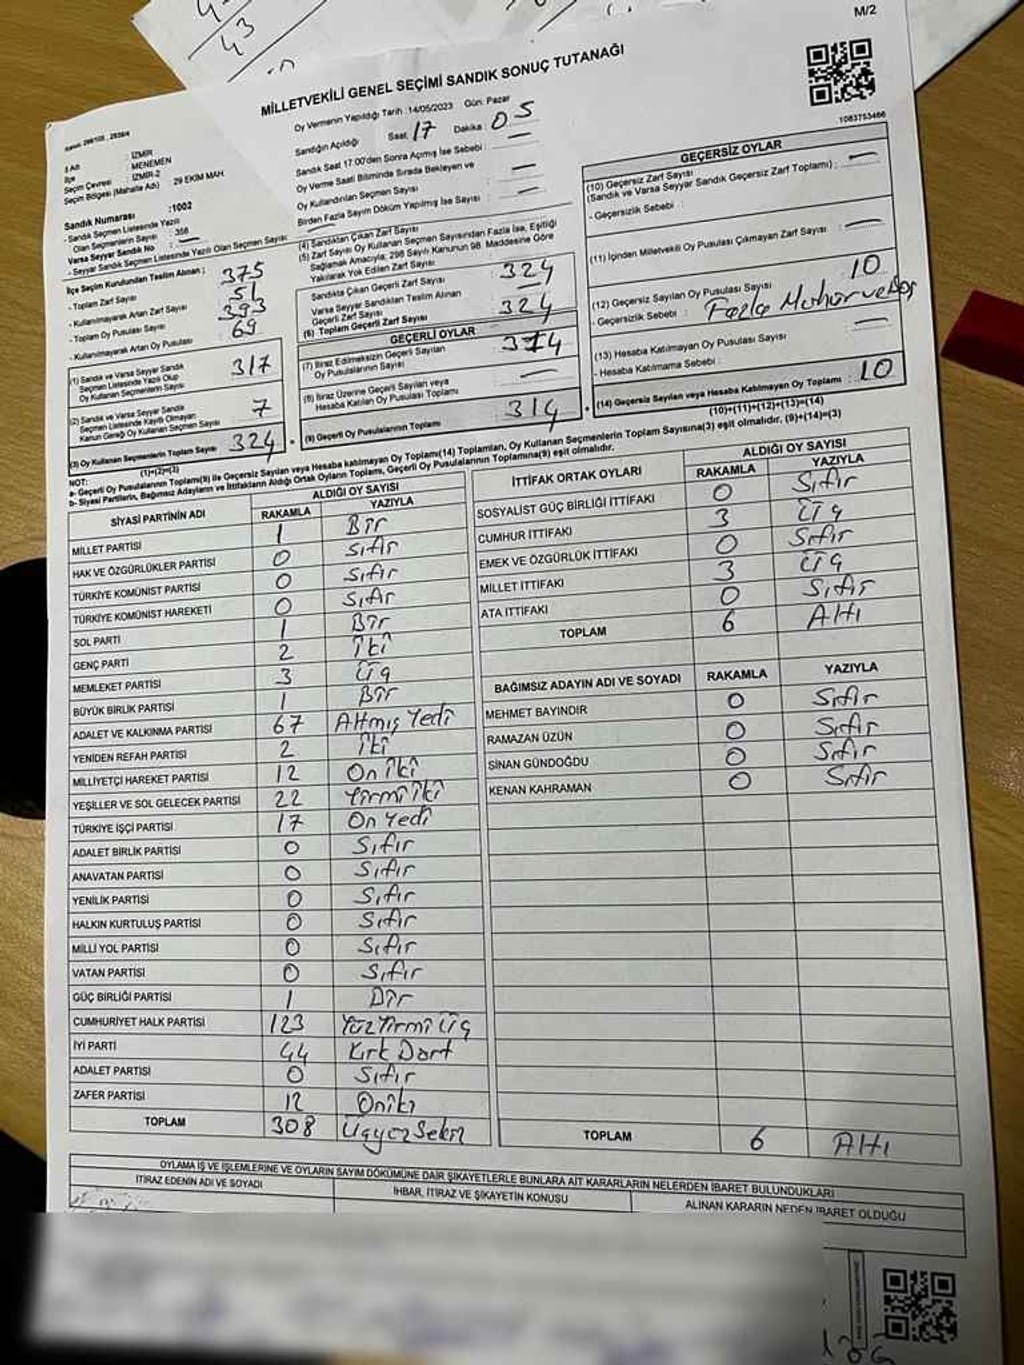 M/2
43
MİLLETVEKİLİ GENEL SEÇİMİ SANDIK SONUÇ TUTANAĞI
1083753466
İl Adı : İZMİR
İlçe : MENEMEN
Seçim Çevresi : İZMİR-2
Seçim Bölgesi (Mahalle Adı) 29 EKİM MAH.
Sandık Numarası :1002
- Sandık Seçmen Listesinde Yazılı
Olan Seçmenlerin Sayısı : 358
Varsa Seyyar Sandık No : —
- Seyyar Sandık Seçmen Listesinde Yazılı Olan Seçmen Sayısı:
İlçe Seçim Kurulundan Teslim Alınan ;
- Toplam Zarf Sayısı : 375
- Kullanılmayarak Artan Zarf Sayısı : 51
- Toplam Oy Pusulası Sayısı : 393
- Kullanılmayarak Artan Oy Pusulası : 69
(1) Sandık ve Varsa Seyyar Sandık
Seçmen Listesinde Yazılı Olup
Oy Kullanan Seçmenlerin Sayısı : 317
(2) Sandık ve Varsa Seyyar Sandık
Seçmen Listesinde Kayıtlı Olmayan
Kanun Gereği Oy Kullanan Seçmen Sayısı : 7
(3) Oy Kullanan Seçmenlerin Toplam Sayısı : 324
(1)+(2)=(3)
Oy Vermenin Yapıldığı Tarih :14/05/2023 Gün: Pazar
Sandığın Açıldığı Saat: 17 Dakika : 05
Sandık Saat 17.00'den Sonra Açılmış İse Sebebi : —
Oy Verme Saati Bitiminde Sırada Bekleyen ve
Oy Kullandırılan Seçmen Sayısı : —
Birden Fazla Sayım Döküm Yapılmış İse Sayısı : —
(4) Sandıktan Çıkan Zarf Sayısı :
(5) Zarf Sayısı Oy Kullanan Seçmen Sayısından Fazla İse, Eşitliği
Sağlamak Amacıyla; 298 Sayılı Kanunun 98. Maddesine Göre
Yakılarak Yok Edilen Zarf Sayısı :
Sandıkta Çıkan Geçerli Zarf Sayısı : 324
Varsa Seyyar Sandıktan Teslim Alınan
Geçerli Zarf Sayısı : —
(6) Toplam Geçerli Zarf Sayısı : 324
GEÇERLİ OYLAR
(7) İtiraz Edilmeksizin Geçerli Sayılan
Oy Pusulalarının Sayısı : 314
(8) İtiraz Üzerine Geçerli Sayılan veya
Hesaba Katılan Oy Pusulası Toplamı : —
(9) Geçerli Oy Pusulalarının Toplamı : 314
GEÇERSİZ OYLAR
(10) Geçersiz Zarf Sayısı
(Sandık ve Varsa Seyyar Sandık Geçersiz Zarf Toplamı) : —
- Geçersizlik Sebebi :
(11) İçinden Milletvekili Oy Pusulası Çıkmayan Zarf Sayısı : —
(12) Geçersiz Sayılan Oy Pusulası Sayısı : 10
- Geçersizlik Sebebi : Fazla Mühür ve Boş
(13) Hesaba Katılmayan Oy Pusulası Sayısı : —
- Hesaba Katılmama Sebebi :
(14) Geçersiz Sayılan veya Hesaba Katılmayan Oy Toplamı : 10
(10)+(11)+(12)+(13)=(14)
NOT:
a- Geçerli Oy Pusulalarının Toplamı(9) ile Geçersiz Sayılan veya Hesaba katılmayan Oy Toplamı(14) Toplamları, Oy Kullanan Seçmenlerin Toplam Sayısına(3) eşit olmalıdır. (9)+(14)=(3)
b- Siyasi Partilerin, Bağımsız Adayların ve İttifakların Aldığı Ortak Oyların Toplamı, Geçerli Oy Pusulalarının Toplamına(9) eşit olmalıdır.
SİYASİ PARTİNİN ADI ALDIĞI OY SAYISI
RAKAMLA YAZIYLA
MİLLET PARTİSI 1 Bir
HAK VE ÖZGÜRLÜKLER PARTİSİ 0 Sıfır
TÜRKİYE KOMÜNİST PARTİSİ 0 Sıfır
TÜRKİYE KOMÜNİST HAREKETİ 0 Sıfır
SOL PARTİ 1 Bir
GENÇ PARTİ 2 İki
MEMLEKET PARTİSİ 3 Üç
BÜYÜK BİRLİK PARTİSİ 1 Bir
ADALET VE KALKINMA PARTİSİ 67 Altmış Yedi
YENİDEN REFAH PARTİSİ 2 İki
MİLLİYETÇİ HAREKET PARTİSİ 12 On iki
YEŞİLLER VE SOL GELECEK PARTİSİ 22 Yirmi iki
TÜRKİYE İŞÇİ PARTİSİ 17 On Yedi
ADALET BİRLİK PARTİSİ 0 Sıfır
ANAVATAN PARTİSİ 0 Sıfır
YENİLİK PARTİSİ 0 Sıfır
HALKIN KURTULUŞ PARTİSİ 0 Sıfır
MİLLİ YOL PARTİSİ 0 Sıfır
VATAN PARTİSİ 0 Sıfır
GÜÇ BİRLİĞİ PARTİSİ 1 Bir
CUMHURİYET HALK PARTİSİ 123 Yüz Yirmi Üç
İYİ PARTİ 44 Kırk Dört
ADALET PARTİSİ 0 Sıfır
ZAFER PARTİSİ 12 Oniki
TOPLAM 308 Üçyüz Sekiz
İTTİFAK ORTAK OYLARI ALDIĞI OY SAYISI
RAKAMLA YAZIYLA
SOSYALİST GÜÇ BİRLİĞİ İTTİFAKI 0 Sıfır
CUMHUR İTTİFAKI 3 Üç
EMEK VE ÖZGÜRLÜK İTTİFAKI 0 Sıfır
MİLLET İTTİFAKI 3 Üç
ATA İTTİFAKI 0 Sıfır
TOPLAM 6 Altı
BAĞIMSIZ ADAYIN ADI VE SOYADI RAKAMLA YAZIYLA
MEHMET BAYINDIR 0 Sıfır
RAMAZAN ÜZÜN 0 Sıfır
SİNAN GÜNDOĞDU 0 Sıfır
KENAN KAHRAMAN 0 Sıfır
TOPLAM 6 Altı
OYLAMA İŞ VE İŞLEMLERİNE VE OYLARIN SAYIM DÖKÜMÜNE DAİR ŞİKAYETLERLE BUNLARA AİT KARARLARIN NELERDEN İBARET BULUNDUKLARI
İTİRAZ EDENİN ADI VE SOYADI İHBAR, İTİRAZ VE ŞİKAYETİN KONUSU ALINAN KARARIN NEDEN İBARET OLDUĞU